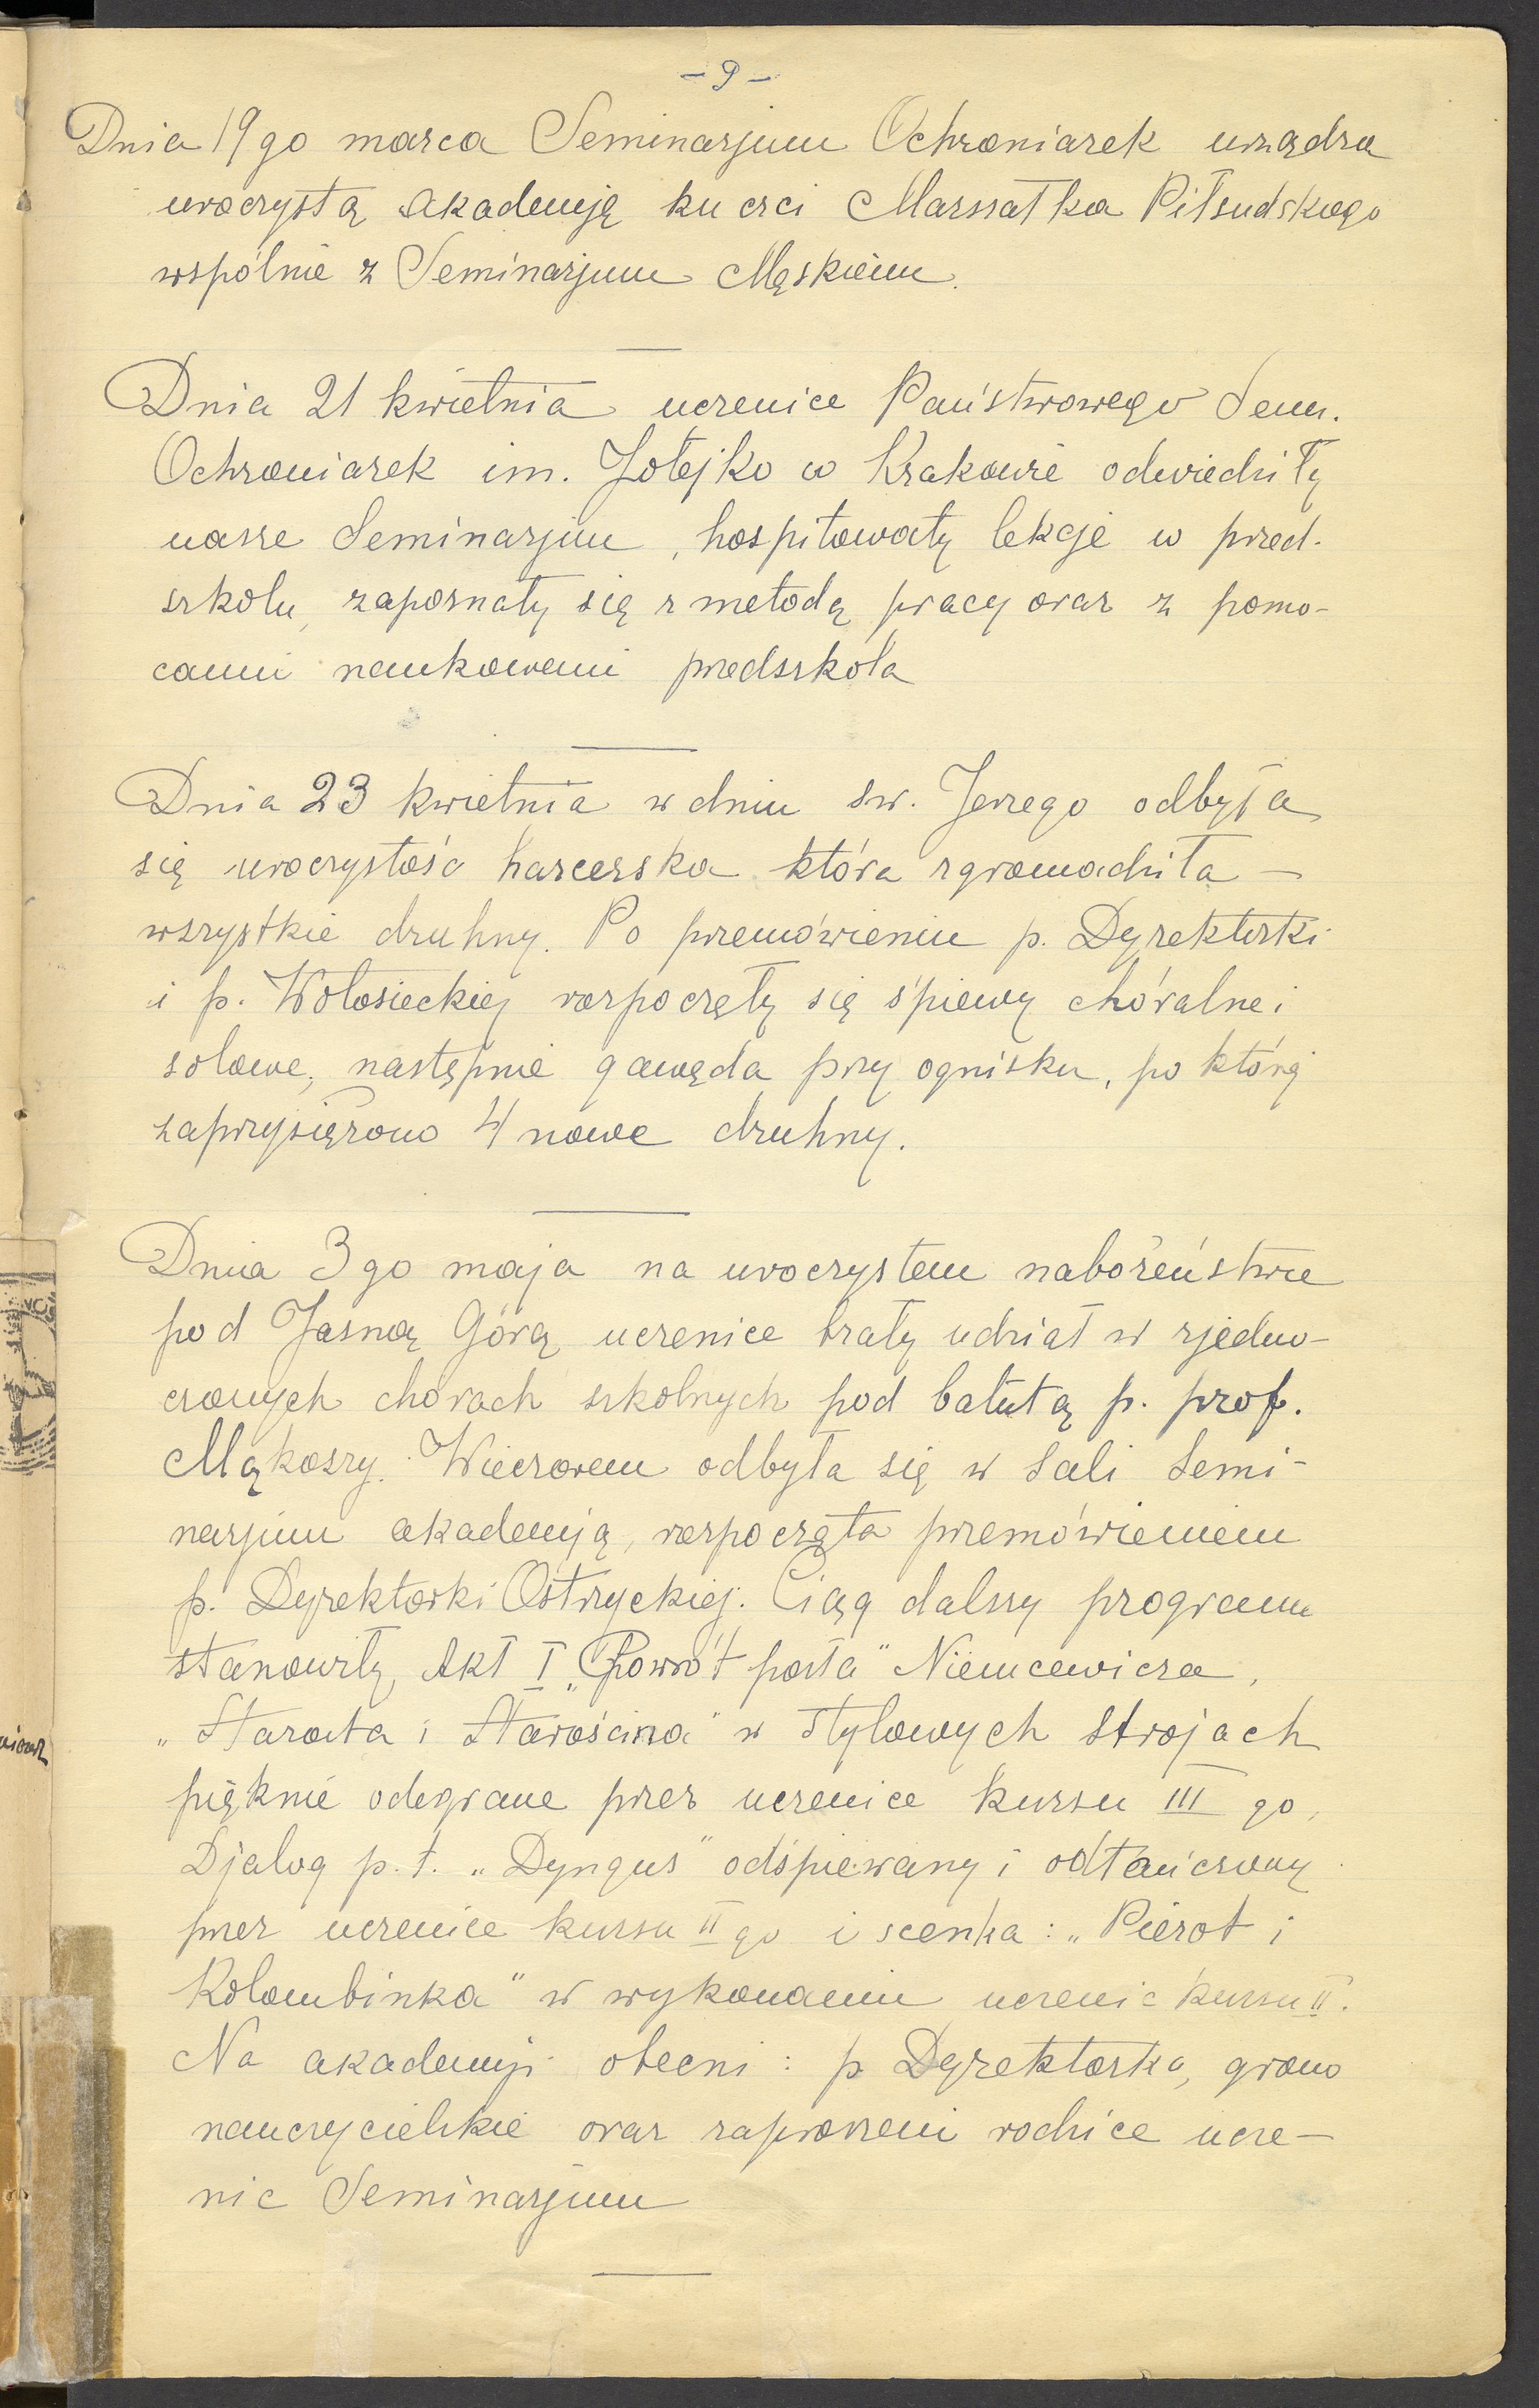 - 9 -
Dnia 19go marca Seminarjum Ochroniarek urządza
uroczystą akademję ku czci Marszałka Piłsudskiego
wspólnie z Seminarjum Męskiem.
Dnia 21 kwietnia uczenice Państwowego Sem.
Ochroniarek im. Jotejko w Krakowie odwiedziły
nasze Seminarjum, hospitowały lekcje w przed-
szkolu, zapoznały się z metodą pracy oraz z pomo-
cami naukowemi przedszkola
Dnia 23 kwietnia w dniu św. Jerzego odbyła
się uroczystość harcerska która zgromadziła -
wszystkie druhny. Po przemówieniu p. Dyrektorki
i p. Wołosieckiej rozpoczęły się śpiewy chóralne i
solowe, następnie gawęda przy ognisku, po której
zaprzysiężono 4 nowe druhny.
Dnia 3go maja na uroczystem nabożeństwie
pod Jasną Górą uczenice brały udział w zjedno-
czonych chórach szkolnych pod batutą p. prof.
Mąkoszy. Wieczorem odbyła się w sali Semi-
narjum akademją, rozpoczęta przemówieniem
p. Dyrektorki Ostrzyckiej. Ciąg dalszy programu
stanowiły Akt I „Powrót posła" Niemcewicza,
„Starosta i Starościna" w stylowych strojach
pięknie odegrane przez uczenice kursu III go,
Djalog p.t. „Dyngus" odśpiewany i odtańczony
przez uczenice kursu II go i scenka: „Pierot i
Kolombinka" w wykonaniu uczenic kursu II.
Na akademji obecni: p Dyrektorka, grono
nauczycielskie oraz zaproszeni rodzice ucze-
nic Seminarjum